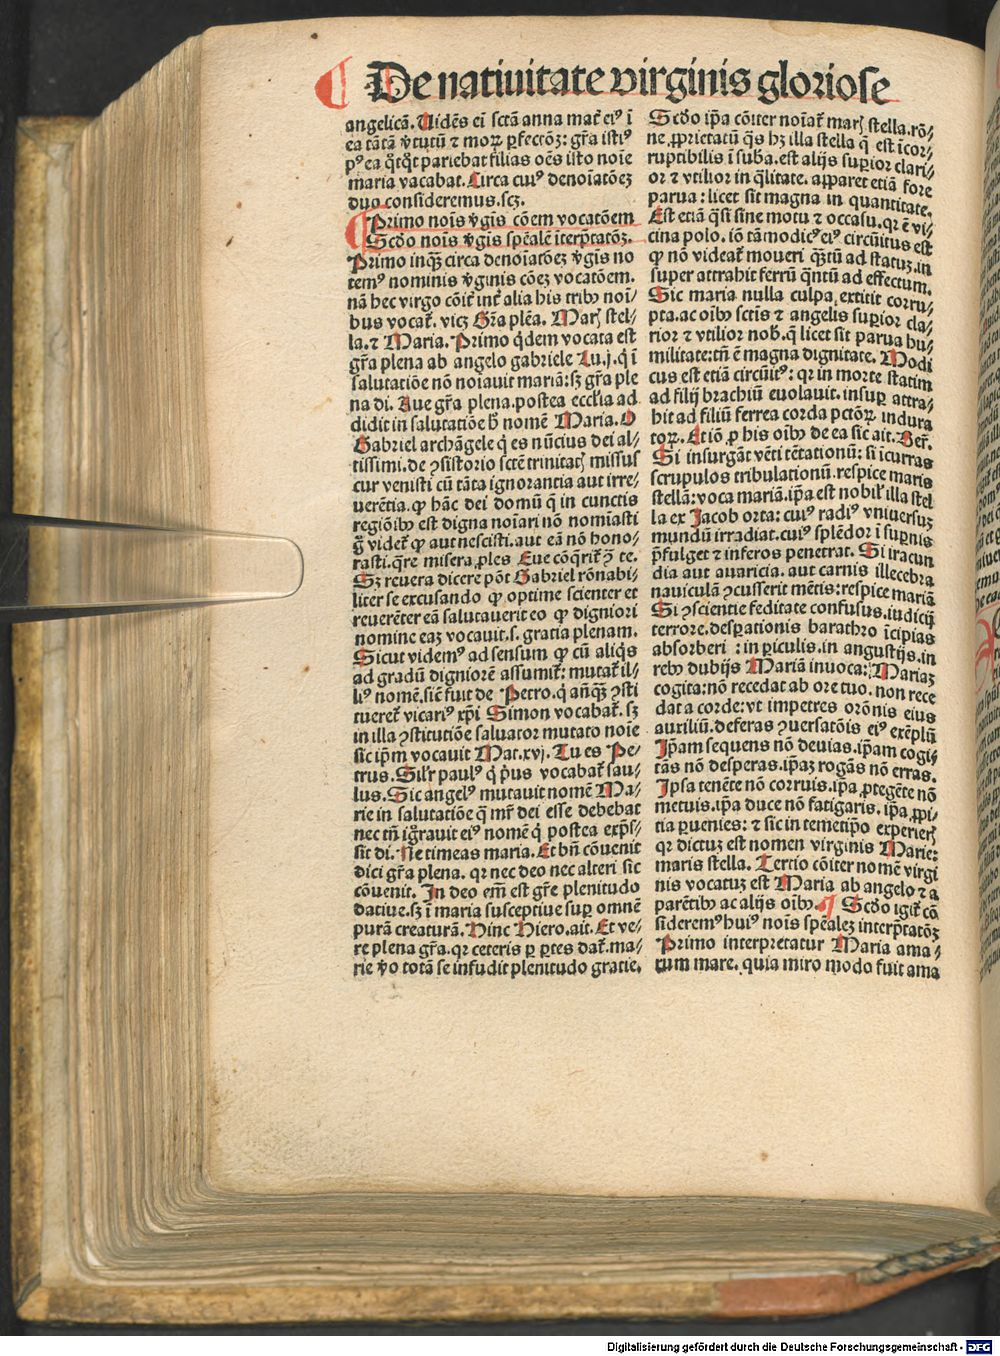 ¶ De natiuitate virginis gloriose
angelicā. Uidēs em̄ sctā anna mat̄ eiꝰ ī
ea tātā v̄tutū ⁊ moꝝ ꝑfectōꝫ: gr̄a istiꝰ
pꝰ ea q̇tq̇t pariebat filias oēs isto noīe
maria vacabat. Circa cuiꝰ denoīatōeꝫ
duo consideremus. sꝫ.
¶ Primo noīs v̄gīs cōem vocatōem
Scd̄o noīs v̄gīs spēalē īterp̄tatōꝫ.
Primo inqꝫ circa denoīatōeꝫ v̄gīs no
temꝰ nominis v̄ginis cōeꝫ vocatōem.
nā hec virgo cōit̄ int̄ alia his tribꝰ noī⸗
bus vocat̄. vicꝫ Gr̄a plēa. Marꝭ stel⸗
la. ⁊ Maria. Primo q̇dem vocata est
gr̄a plena ab angelo gabriele Lu. j. q̇ ī
salutatiōe nō noīauit mariā: sꝫ gr̄a ple
na di. Aue gr̄a plena. postea eccl̄ia ad
didit in salutatiōe h̄ nomē Maria. O
Gabriel archāgele q̇ es nūcius dei al⸗
tissimi. de ꝯsistorio sctē trinitatꝭ missus
cur venisti cū tāta ignorantia aut irre⸗
uerētia. ꝙ hāc dei domū q̄ in cunctis
regiōibꝰ est digna noīari nō nomīasti
g̊ videt̄ ꝙ aut nescisti. aut eā nō hono⸗
rasti. q̄re misera ꝓles Eue cōq̄rit̄ ꝯ te.
Sꝫ reuera dicere pōt Gabriel rōnabi⸗
liter se excusando ꝙ optime scienter et
reuerēter eā salutauerit eo ꝙ digniori
nomine eaꝫ vocauit. s. gratia plenam.
Sicut videmꝰ ad sensum ꝙ cū aliq̇s
ad gradū digniorē assumit̄: mutat̄ il⸗
liꝰ nomē. sic̄ fuit de Petro. q̇ añqꝫ ꝯsti
tueret̄ vicariꝰ xp̄i Simon vocabat̄. sꝫ
in illa ꝯstitutiōe saluator mutato noīe
sic ip̄m vocauit Mat. xvj. Tu es Pe⸗
trus. Sil̄r paulꝰ q̇ pͥus vocabat̄ sau⸗
lus. Sic angelꝰ mutauit nomē Ma⸗
rie in salutatiōe q̄ mr̄ dei esse debebat
nec tn̄ ig̊rauit eiꝰ nomē q̇ postea exp̄s⸗
sit di. Ne timeas maria. Et bn̄ cōuenit
dici gr̄a plena. qꝛ nec deo nec alteri sic
cōuenit. In deo em̄ est gr̄e plenitudo
datiue. sꝫ ī maria susceptiue suꝑ omnē
purā creaturā. Hinc Hiero. ait. Et ve⸗
re plena gr̄a. qꝛ ceteris ꝑ ꝑtes dat̄. ma⸗
rie v̄o totā se infudit plenitudo gratie.
Scd̄o ip̄a cōiter noīat̄ marꝭ stella. rō⸗
ne ꝓprietatū q̄s hꝫ illa stella q̄ est īcor⸗
ruptibilis ī suba. est alijs suꝑior clari⸗
or ⁊ vtilior in q̄litate. apparet etiā fore
parua: licet sit magna in quantitate.
Est etiā q̄si sine motu ⁊ occasu. qꝛ ē vi⸗
cina polo. iō tā modicꝰ eiꝰ circūitus est
ꝙ nō videat̄ moueri qꝫtū ad statuꝫ. in
super attrahit ferrū q̄ntū ad effectum.
Sic maria nulla culpa extitit corru⸗
pta. ac oībꝰ sctīs ⁊ angelis suꝑior cla⸗
rior ⁊ vtilior nob̄. q̄ licet sit parua hu⸗
militate: tn̄ ē magna dignitate. Modi
cus est etiā circūitꝰ: qꝛ in morte statim
ad filij brachiū euolauit. insuꝑ attra⸗
hit ad filiū ferrea corda pctōꝝ indura
toꝝ. Et iō ꝓ his oībꝰ de ea sic ait. Ber̄.
Si insurgāt vēti tētationū: si icurras
scrupulos tribulationū. respice maris
stellā: voca mariā. ip̄a est nobil̄ illa stel
la ex Jacob orta: cuiꝰ radiꝰ vniuersuꝫ
mundū irradiat. cuiꝰ splēdor ī suꝑnis
p̄fulget ⁊ inferos penetrat. Si iracun
dia aut auaricia. aut carnis illecebra
nauiculā ꝯcusserit mētis: respice mariā
Si ꝯscientie feditate confusus. iudicij
terrore. desꝑationis barathro īcipias
absorberi: in ꝑiculis. in angustijs. in
rebꝰ dubijs Mariā inuoca: Mariaꝫ
cogita: nō recedat ab ore tuo. non rece
dat a corde: vt impetres orōnis eius
auxiliū. deferas ꝯuersatōīs eiꝰ exēplū
Ip̄am sequens nō deuias. ip̄am cogi⸗
tās nō desperas. ip̄aꝫ rogās nō erras.
Ipsa tenēte nō corruis. ip̄a ꝓtegēte nō
metuis. ip̄a duce nō fatigaris. ip̄a ꝓpi⸗
tia ꝑuenies: ⁊ sic in temetip̄o experierꝭ
qꝛ dictuꝫ est nomen virginis Marie:
maris stella. Tertio cōiter nomē virgi
nis vocatuꝫ est Maria ab angelo ⁊ a
parētibꝰ ac alijs oībꝰ. ¶ Scd̄o igit̄ cō
sideremꝰ huiꝰ noīs spēaleꝫ interp̄tatōꝫ
Primo interpretatur Maria ama⸗
rum mare. quia miro modo fuit ama
Digitalisierung gefördert durch die Deutsche Forschungsgemeinschaft - DFG